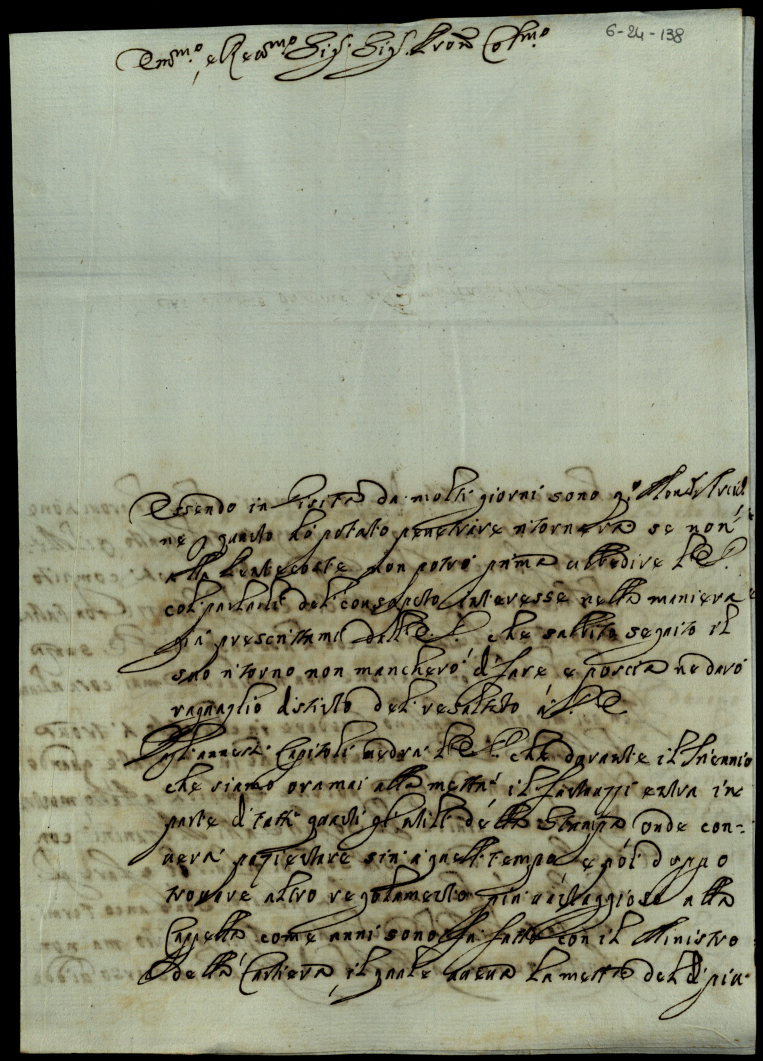 6-24-138
Em.mo, e Re.mo Sig.r Sig.r Pron Col.mo
Essendo in Visita da molti giorni sono q.o Mons.r
ne p quanto hò potuto penetrare ritornerà se non
alla Pentecoste non potrò prima ubbedire V. E.
col parlarli del consaputo interesse nella maniera
già prescrittami dall' E. V. che subbito seguito il
suo ritorno non mancherò di fare e poscia ne darò
ragguaglio distinto del resultato à V. E.
Dagl'annessi Capitoli vedrà V. E. che durante il Triennio
che siamo oramai alla mettà il entra in
parte di tutti quanti gl'utili della Stampa onde con-
verà pazientare sin à quell tempo e poi doppo
trovare altro regolamento più vantaggioso alla
Cappella come anni sono fù fatto con il Ministro
della Cartiera, il quale aveva la mettà del di più